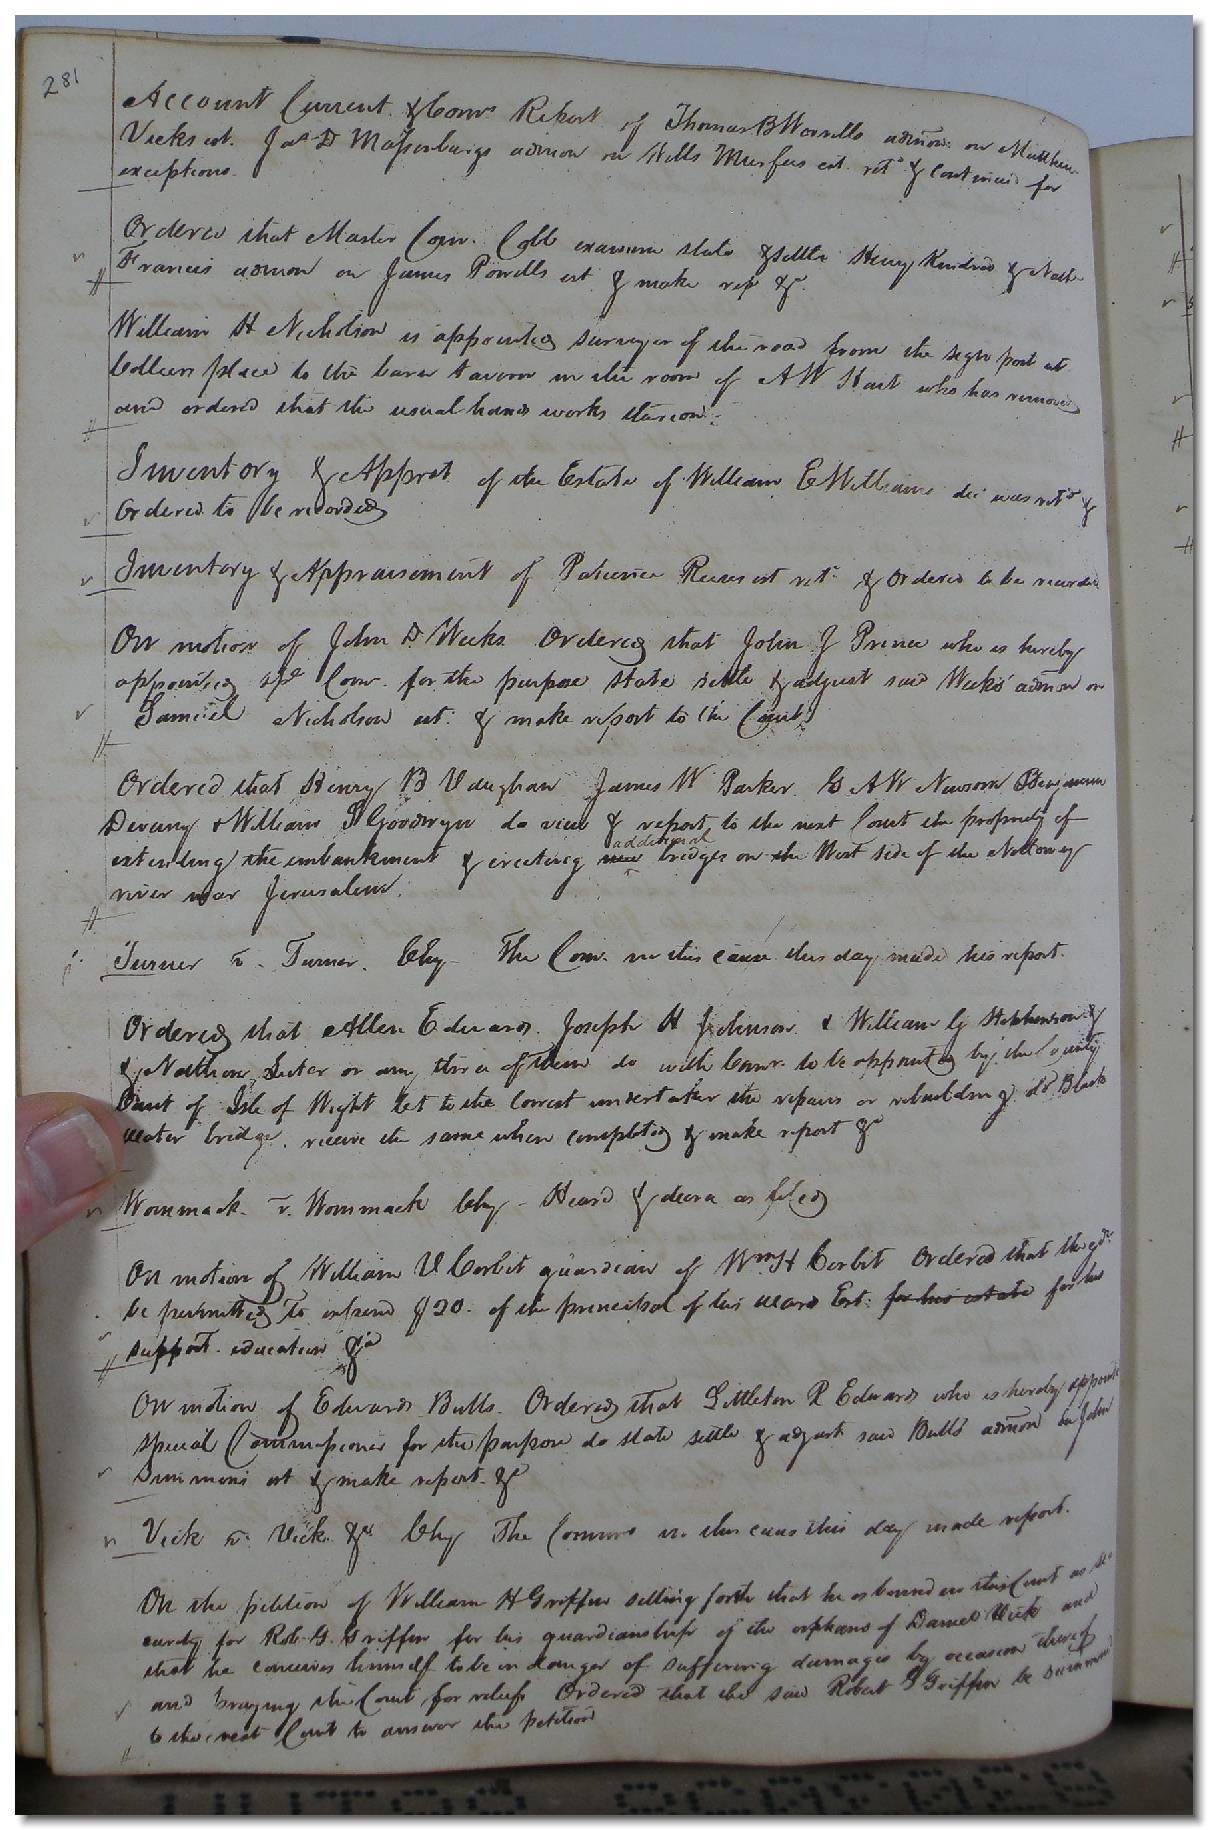 281
Account Current & Comrs Report of Thomas B Worrells admon: on Matthew
Vicks est. Jas D Massenburgs admon on Wells Murfees est. retd & continued for
exceptions.
Ordered that Master Comr. Cobb examine state & settle Henry Kindred & Nath
Francis admon on James Powells est & make rep &c.
William H Nicholson is appointed surveyor of the road from the sign post at
place to the tavern in the room of A W Hart who has removed
and ordered that the usual hands works thereon.
Inventory & Apprst of the Estate of William E Williams dec was retd &
Ordered to be recorded
Inventory & Appraisement of Patience Reeves est retd & Ordered to be recorded
On motion of John D Weeks Ordered that John J Prince who is hereby
appointed spl Comr. for the purpose state settle & adjust said Weeks' admon on
Samuel Nicholson est: & make report to the Court
Ordered that Henry B Vaughan James W Parker G A W Newsom Benjamin
Devany & William S Goodwyn do view & report to the next Court the propriety of
extending the embankment & erecting new additional bridges on the West side of the Nottoway
river near Jerusalem.
Turner v. Turner. Chy The Comr. in this cause this day made his report.
Ordered that Allen Edwards. Joseph H Johnson & William G Stephenson &
& Nathan or any three of them do with Comr. to be appointed by the County
Court of Isle of Wight let to the lowest undertaker the repairs or rebuilding of Black
water bridge. receive the same when completed & make report &c
Wommack v. Wommack Chy - Heard & decree as filed
On motion of William V Corbit guardian of Wm H Corbit Ordered that the gdn
be permitted to expend $20. of the principal of his ward Est: for his estate for his
support education &c
On motion of Edwards Butts. Ordered that Littleton R Edwards who is hereby appointed
special Commissioner for the purpose do state settle & adjust said Butts' admon on John
Simmons est & make report &c
Vick v. Vick &c Chy The Commrs in this cause this day made report.
On the petition of William H Griffin setting forth that he is bound in this Court as se
curity for Rob. G. Griffin for his guardianship of the orphans of Daniel Vick and
that he conceives himself to be in danger of suffering damages by occasion thereof
and praying the Court for relief Ordered that the said Robert G Griffin be summoned
to the next Court to answer the petition